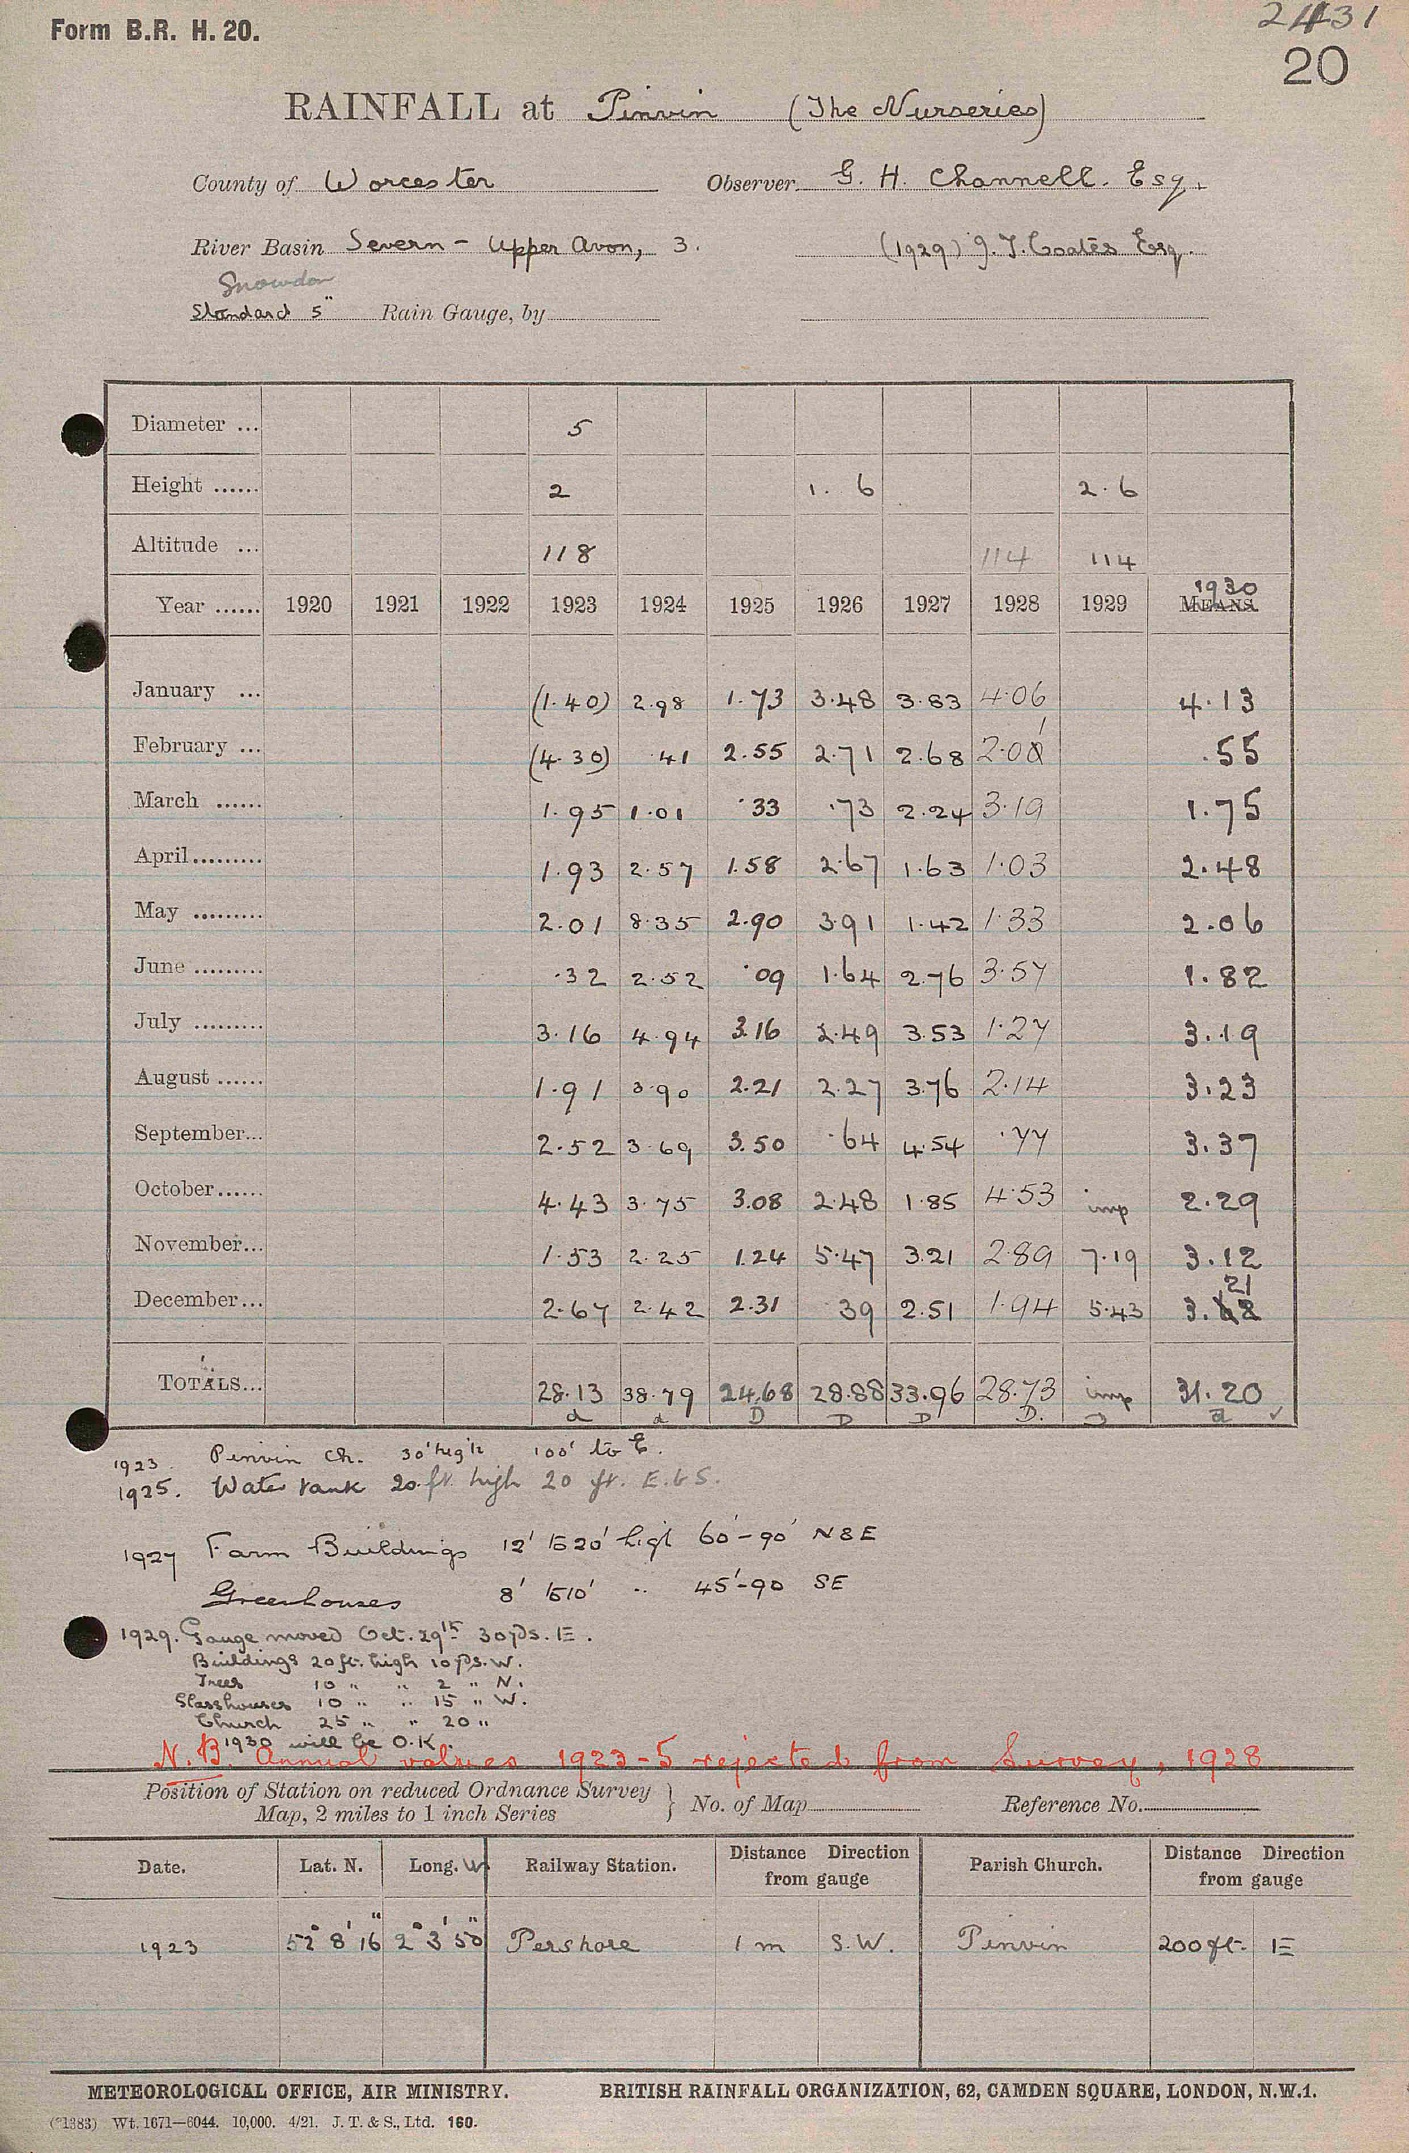 Form B.R. H. 20.
2431
20
RAINFALL at Pinvin (The Nurseries)
County of Worcester Observer G. H. Channell. Esq.
River Basin Severn - Upper Avon, 3. (1929) J. T. Coates Esq.
Snowdon
Standard 5" Rain Gauge, by
Diameter ... 5
Height ...... 2 1. 6 2. 6
Altitude ... 118 114 114
1930
Year ...... 1920 1921 1922 1923 1924 1925 1926 1927 1928 1929 MEANS
January ... (1.40) 2.98 1.73 3.48 3.83 4.06 4.13
February ... (4.30) .41 2.55 2.71 2.68 2.01 .55
March ...... 1.95 1.01 .33 .73 2.24 3.19 1.75
April ......... 1.93 2.57 1.58 2.67 1.63 1.03 2.48
May ......... 2.01 8.35 2.90 3.91 1.42 1.33 2.06
June ......... .32 2.52 .09 1.64 2.76 3.57 1.82
July ......... 3.16 4.94 3.16 2.49 3.53 1.27 3.19
August ...... 1.91 3.90 2.21 2.27 3.76 2.14 3.23
September... 2.52 3.69 3.50 .64 4.54 .77 3.37
October...... 4.43 3.75 3.08 2.48 1.85 4.53 imp 2.29
November... 1.53 2.25 1.24 5.47 3.21 2.89 7.19 3.12
December... 2.67 2.42 2.31 .39 2.51 1.94 5.43 3.21
TOTALS... 28.13 38.79 24.68 28.88 33.96 28.73 imp 31.20
a a D D D D. a
1923. Pinvin Ch. 30' high 100' to E.
1925. Water tank 20 ft. high 20 ft. E. b S.
1927 Farm Buildings 12' to 20' high 60'-90' N & E
Greenhouses 8' to 10' " 45'-90 SE
1929. Gauge moved Oct. 29th 30 yds. E.
Buildings 20 ft. high 10 yds. W.
Trees 10 " " 2 " N.
Glasshouses 10 " " 15 " W.
Church 25 " " 20 "
1930 will be O.K.
N.B. Annual values 1923-5 rejected from Survey, 1928
Position of Station on reduced Ordnance Survey Map, 2 miles to 1 inch Series } No. of Map Reference No.
Date. Lat. N. Long. W Railway Station. Distance Direction from gauge Parish Church. Distance Direction from gauge
1923 52° 8' 16" 2° 3' 50" Pershore 1 m S.W. Pinvin 200 ft. E
METEOROLOGICAL OFFICE, AIR MINISTRY. BRITISH RAINFALL ORGANIZATION, 62, CAMDEN SQUARE, LONDON, N.W.1.
(*1383) Wt. 1671—6044. 10,000. 4/21. J. T. & S., Ltd. 160.